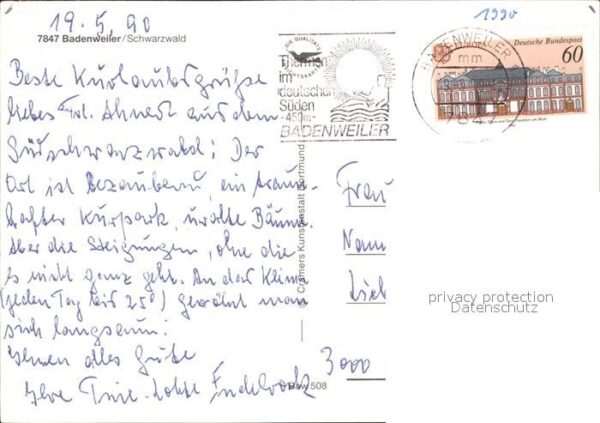 19.5.90
1990
7847 Badenweiler/Schwarzwald
Beste Kurlaubsgrüße
liebes Frl. Ahnert aus dem
Südschwarzwald! Der
Ort ist bezaubernd, ein traum-
hafter Kurpark, uralte Bäume.
Aber die Steigungen, ohne die
es nicht ganz geht. An das Klima
(jeden Tag bis 25°) gewöhnt man
sich langsam!
Ihnen alles Gute
Ihre
Thermen
im
deutschen
Süden
-450m-
BADENWEILER
BADENWEILER
mm
7847
EUROPA Deutsche Bundespost
60
© Cramers Kunstanstalt Dortmund
Frau
Nann
Lieb
3000
Baw 508
privacy protection
Datenschutz